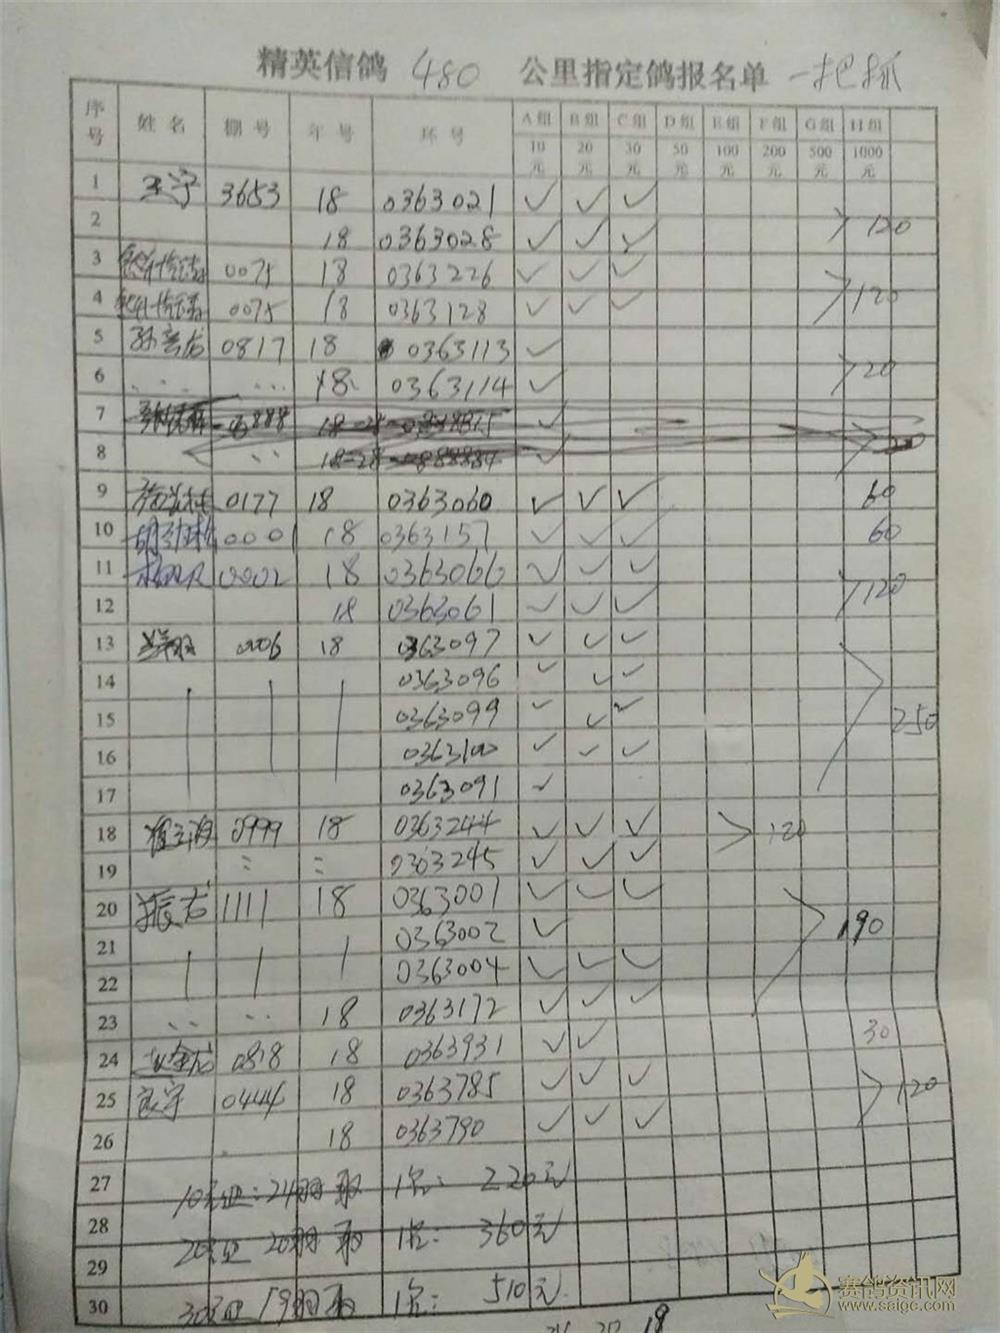 精英信鸽 480 公里指定鸽报名单 一把抓
序号 姓名 棚号 年号 环号 A组 B组 C组 D组 E组 F组 G组 H组
10元 20元 30元 50元 100元 200元 500元 1000元
1 王宁 3653 18 0363021 ✓ ✓ ✓
2 18 0363028 ✓ ✓ ✓ 120
3 0075 18 0363226 ✓ ✓ ✓
4 0075 18 0363128 ✓ ✓ ✓ 120
5 0817 18 0363113 ✓
6 18 0363114 ✓ 20
7 18 ✓
8 ✓
9 0177 18 0363060 ✓ ✓ ✓ 60
10 0001 18 0363157 ✓ ✓ ✓ 60
11 0002 18 0363066 ✓ ✓ ✓
12 18 0363061 ✓ ✓ ✓ 120
13 0006 18 0363097 ✓ ✓ ✓
14 0363096 ✓ ✓ ✓
15 0363099 ✓ ✓ ✓ 250
16 0363100 ✓ ✓ ✓
17 0363091 ✓
18 0999 18 0363244 ✓ ✓ ✓ 120
19 0363245 ✓ ✓ ✓
20 振龙 1111 18 0363001 ✓ ✓ ✓
21 0363002 ✓ 190
22 0363004 ✓ ✓ ✓
23 18 0363172 ✓ ✓ ✓
24 0818 18 0363931 ✓ ✓ 30
25 0444 18 0363785 ✓ ✓ ✓ 120
26 18 0363790 ✓ ✓ ✓
27 10元 24羽取 1名: 220元
28 20元 20羽取 1名: 360元
29
30 30元 19羽取 1名: 510元
赛鸽资讯网
www.saigc.com